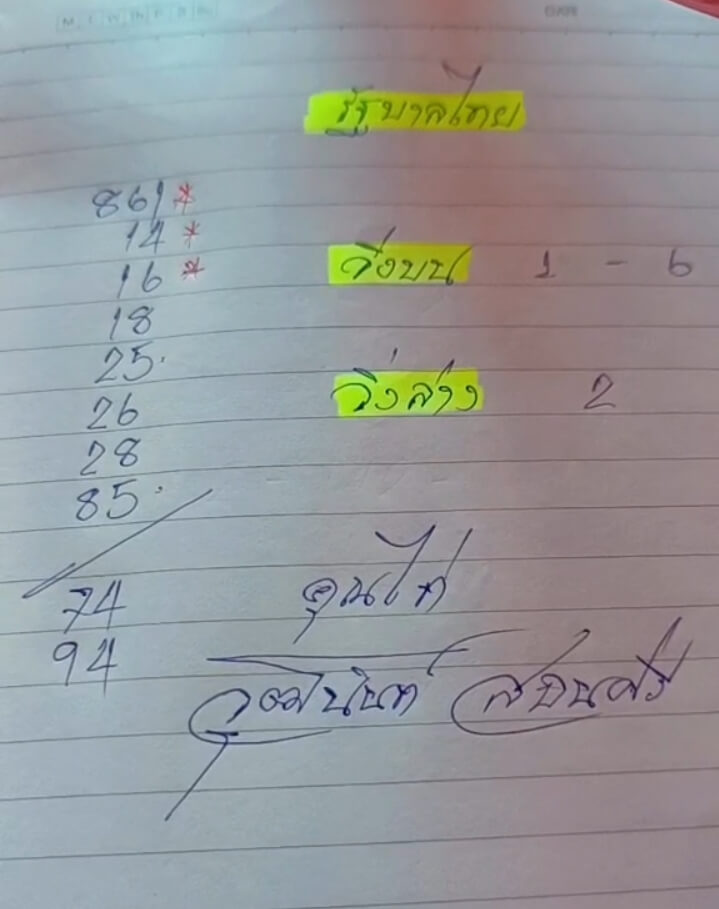 รัฐบาลไทย
861*
14 *
16 *
18
วิ่งบน 1 - 6
25.
26
วิ่งล่าง 2
28
85.
74
คุณไก่
94